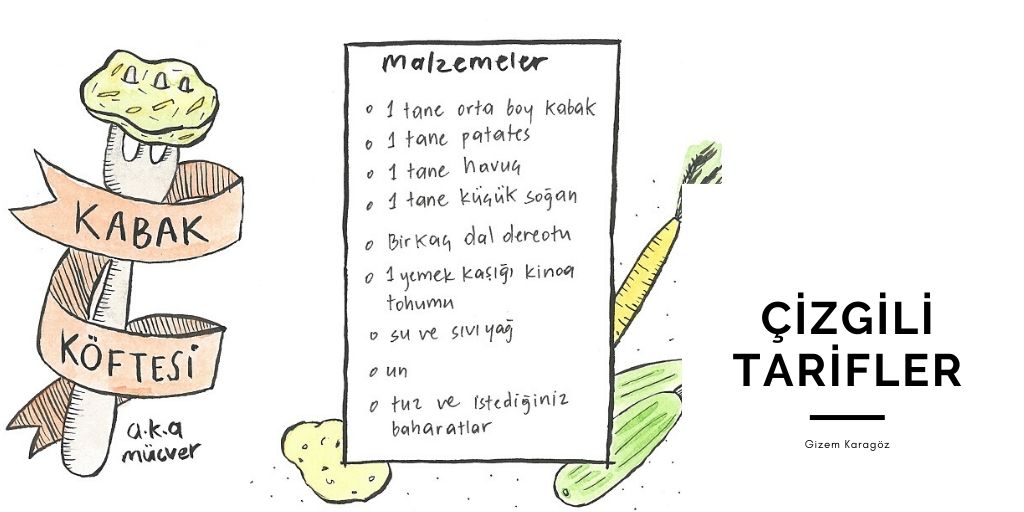 KABAK
KÖFTESİ
a.k.a
mücver
Malzemeler
1 tane orta boy kabak
1 tane patates
1 tane havuç
1 tane küçük soğan
Birkaç dal dereotu
1 yemek kaşığı kinoa
tohumu
su ve sıvı yağ
un
tuz ve istediğiniz
baharatlar
ÇİZGİLİ
TARİFLER
Gizem Karagöz